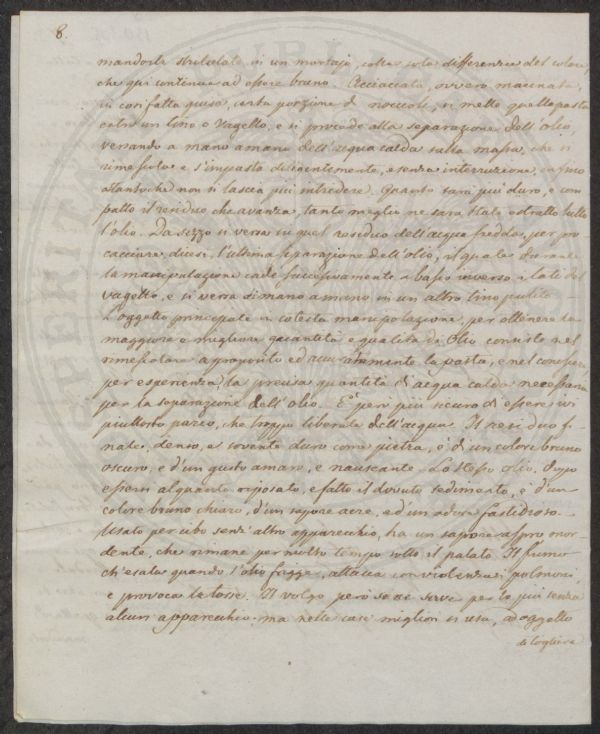 8.
mandorle stritolate in un mortajo, colla sola differenza del colore,
che qui continua ad essere bruno. Acciaccata, ovvero macinata,
in così fatta guisa, certa porzione di noccioli, si mette quella pasta
entro un tino o Vagello, e si procede alla separazione dell'olio,
versando a mano a mano dell'acqua calda sulla massa, che si
rimescola e s'impasta diligentemente, e senza interruzione, infino
a tanto che non si lascia più intridere. Quanto sarà più duro, e com
patto il residuo che avanza, tanto meglio ne sarà stato estratto tutto
l'olio. Da sezzo si versa in quel residuo dell'acqua fredda, per pro
cacciare, diresi, l'ultima separazione dell'olio, il quale durante
la manipolazione cade successivamente a basso inverso i lati del
vagello, e si versa di mano a mano in un altro tino pulito.
L'oggetto principale in cotesta manipolazione, per ottenere la
maggiore e migliore quantità e qualità di Olio consiste nel
rimescolare a proposito ed accuratamente la pasta, e nel conoscere
per esperienza, la precisa quantità di acqua calda necessaria
per la separazione dell'olio. E però più sicuro di essere ivi
piuttosto parco, che troppo liberale dell'acqua. Il residuo fi
nale, denso, e sovente duro come pietra, è di un colore bruno
oscuro, e d'un gusto amaro, e nauseante. Lo stesso olio, dopo
essersi alquanto riposato, e fatto il dovuto sedimento, è d'un
colore bruno chiaro, d'un sapore acre, ed un odore fastidioso.
Usato per cibo senz'altro apparecchio, ha un sapore aspro mor
dente, che rimane per molto tempo sotto il palato. Il fumo
ch'esala quando l'olio frigge, attacca con violenza i polmoni,
e provoca la tosse. Il volgo però se ne serve per lo più senza
alcun apparecchio: ma nelle case migliori si usa, ad oggetto
di togliere